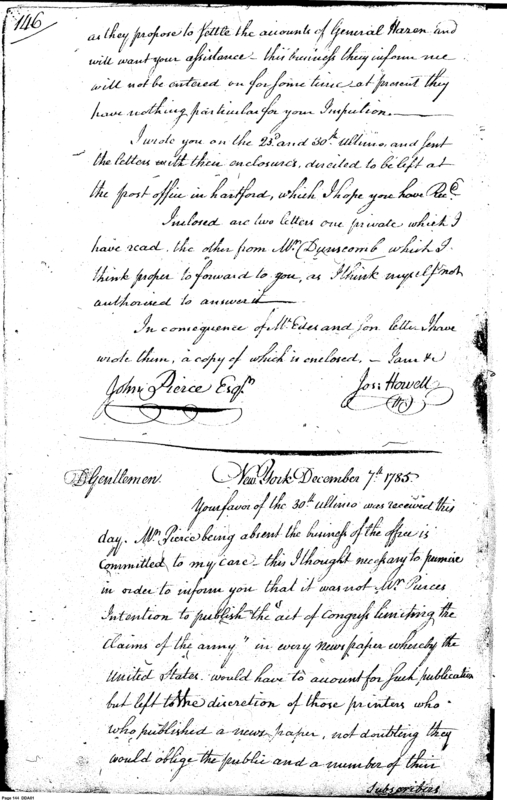 146
as they propose to settle the accounts of General Hazen and
will want your assistance - this business they inform me
will not be entered on for some time, at present they
have nothing particular for your Inspection.
I wrote you on the 23d and 30th ultimo, and sent
the letters with their enclosures, directed to be left at
the post office in hartford, which I hope you have Recd
Inclosed are two letters one private which I
have read, the other from Mr Dunscomb which I
think proper to forward to you, as I think myself not
authorised to answer it
In consequence of Mr Edes and son letter I have
wrote them, a copy of which is enclosed, - I am &c
John Pierce Esqr
Jos: Howell
Gentlemen.
New York December 7th 1785
Your favor of the 30th ultimo was received this
day. Mr Pierce being absent the business of the office is
committed to my care - this I thought necessary to premise
in order to inform you that it was not Mr Pierces
Intention to publish the "act of Congress limiting the
claims of the army" in every news paper whereby the
United States would have to account for such publication
but left to the discretion of those printers who
who published a news paper, not doubting they
would oblige the public and a number of their
subscribers
Page 144 DDA01